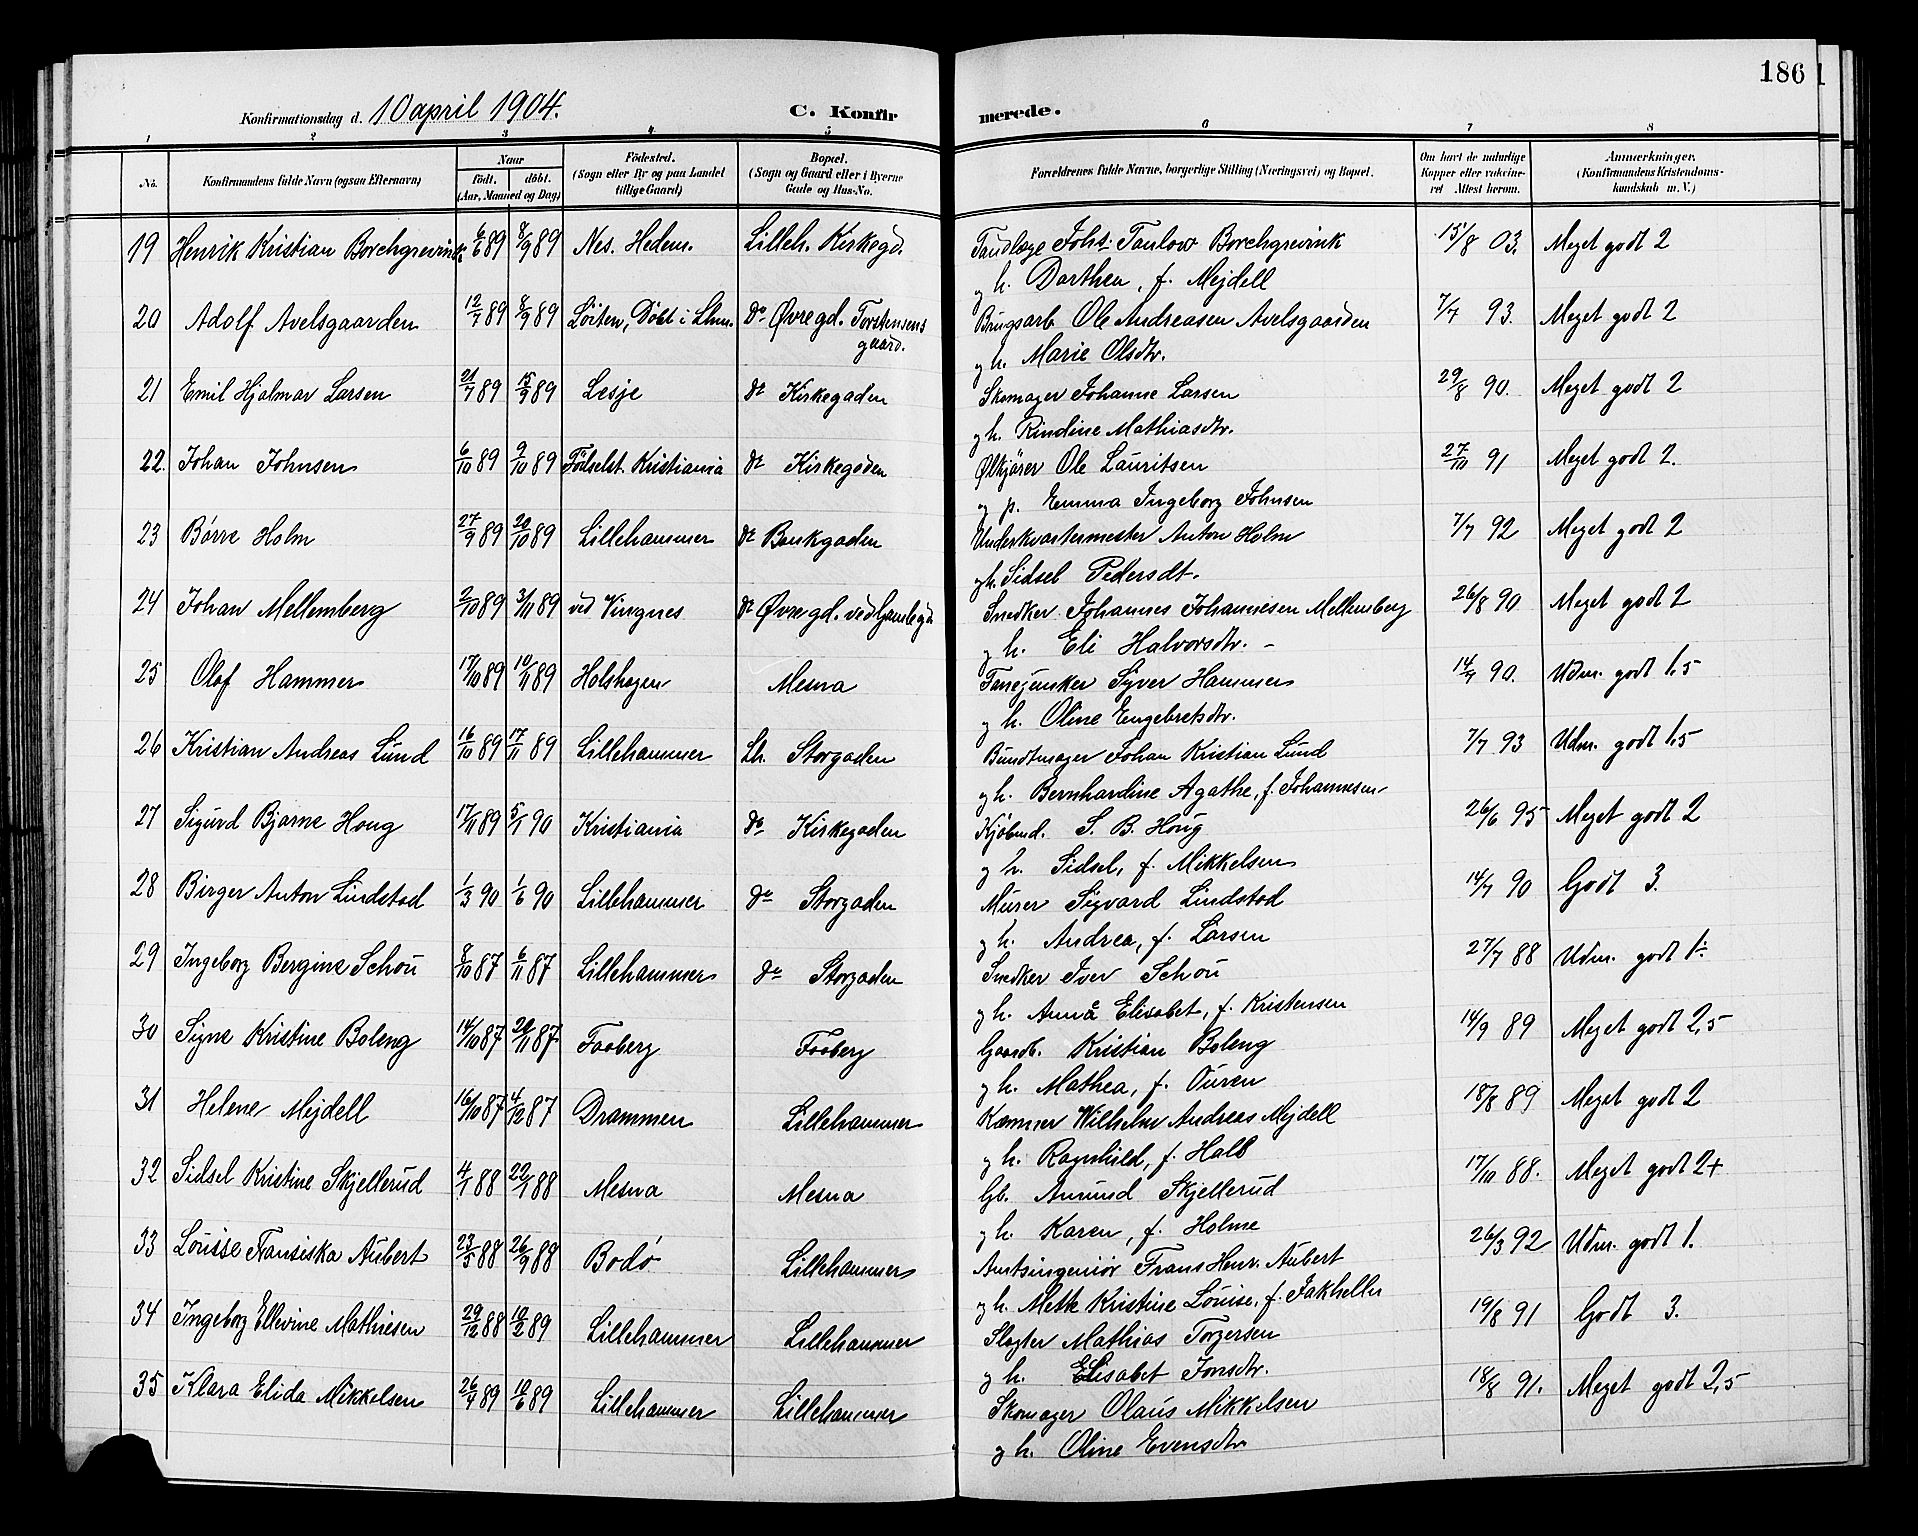 186
Konfirmationsdag d. 10 april 1904. C. Konfirmerede.
1 2 3 4 5 6 7 8
No. Konfirmandens fulde Navn (ogsaa Efternavn) Naar født. døbt. (Aar, Maaned og Dag) Fødested. (Sogn eller By og paa Landet tillige Gaard) Bopæl. (Sogn og Gaard eller i Byerne Gade og Hus-No. Forældrenes fulde Navne, borgerlige Stilling (Næringsvei) og Bopæl. Om havt de naturlige Kopper eller vaccineret Attest herom. Anmærkninger. (Konfirmandens Kristendomskundskab m. V.)
19 Henrik Kristian Borchgrevink 6/6 89 8/9 89 Nes. Hedem. Lilleh. Kirkegd. Tandlæge Johs. Taulow Borchgrevink 15/8 03. Meget godt 2
og h. Dorthea, f. Mejdell
20 Adolf Avelsgaarden 12/7 89 8/9 89 Løiten, Døbt i Lhm. do Øvregd. Torstensens Brugsarb Ole Andreasen Avelsgaarden 7/7 93. Meget godt 2
gaard.
og h. Marie Olsdtr.
21 Emil Hjalmar Larsen 21/7 89 15/9 89 Lesje do Kirkegaden Skomager Johanne Larsen 29/8 90. Meget godt 2
og h. Rindine Mathiasdtr.
22. Johan Johnsen 6/10 89 9/10 89 Fødselst. Kristiania do Kirkegaden Ølkjører Ole Lauritsen 27/10 91 Meget godt 2.
og p. Emma Ingeborg Johnsen
23 Børre Holm 27/9 89 20/10 89 Lillehammer do Bankgaden Underkvartermester Anton Holm 7/7 92 Meget godt 2
og h. Sidsel Pedersdt.
24 Johan Mellemberg 2/10 89 3/11 89 ved Vingnes do Øvregd. ved Snedker Johannes Johannesen Mellemberg 26/8 90 Meget godt 2
og h. Eli Halvorsdtr. -
25 Olaf Hammer 17/10 89 10/11 89 Holshagen Mesna Fanejunker Syver Hammer 14/7 90. Udm. godt 1.5
og h. Oline Engebretsdtr.
26 Kristian Andreas Lund 16/10 89 17/11 89 Lillehammer Lh. Storgaden Bundtmager Johan Kristian Lund 7/7 93 Udm. godt 1.5
og h. Bernhardine Agathe, f. Johannesen
27 Sigurd Bjarne Houg 17/11 89 5/1 90 Kristiania do Kirkegaden Kjøbmd. S. B. Houg 26/6 95 Meget godt 2
og h. Sidsel, f. Mikkelsen
28 Birger Anton Lindstad 1/3 90 1/6 90 Lillehammer do Storgaden Murer Sigvard Lindstad 14/7 90 Godt 3.
og h. Andrea, f. Larsen
29 Ingeborg Bergine Schou 8/10 87 6/11 87 Lillehammer do Storgaden Snedker Iver Schou 27/7 88 Udm. godt 1÷
og h. Anna Elisabet, f. Kristensen
30 Signe Kristine Boleng 14/10 87 20/11 87 Faaberg Faaberg Gaardb. Kristian Boleng 14/9 89 Meget godt 2,5
og h. Mathea, f. Ouren
31 Helene Mejdell 16/10 87 4/12 87 Drammen Lillehammer Kæmner Wilhelm Andreas Mejdell 18/8 89 Meget godt 2
og h. Ragnhild, f. Hall
32 Sidsel Kristine Skjellerud 4/1 88 22/1 88 Mesna Mesna Gb. Amund Skjellerud 17/10 88. Meget godt 2+
og h. Karen, f. Holme
33 Louise Fransiska Aubert 23/5 88 26/9 88 Bodø Lillehammer Amtsingeniør Frans Henr. Aubert 26/3 92 Udm. godt 1.
og h. Mette Kristine Louise, f. Jakhelln
34 Ingeborg Ellevine Mathiesen 29/12 88 10/2 89 Lillehammer Lillehammer Slagter Mathias Torgersen 19/8 91 Godt 3.
og h. Elisabet Jonsdtr.
35 Klara Elida Mikkelsen 26/4 89 10/6 89 Lillehammer Lillehammer Skomager Olaus Mikkelsen 18/8 91. Meget godt 2,5
og h. Oline Evensdtr